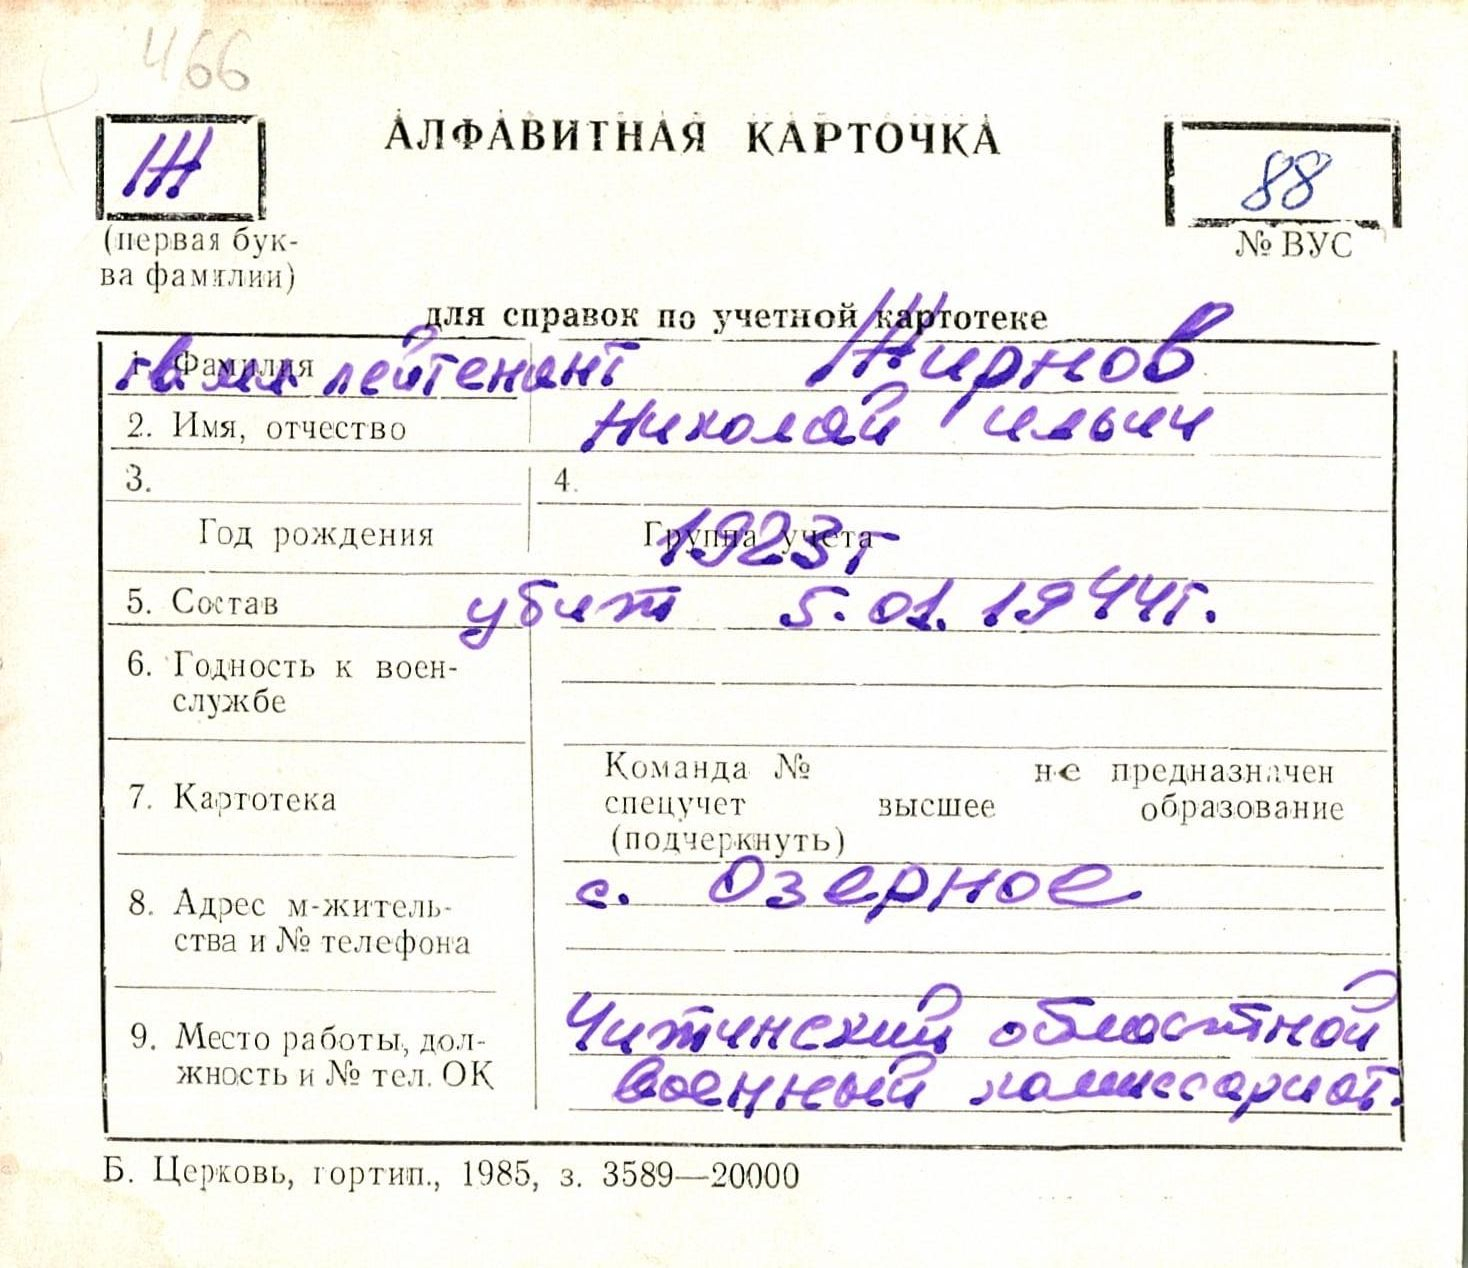 466
Ж
АЛФАВИТНАЯ КАРТОЧКА
88
(первая бук-
ва фамилии)
№ ВУС
для справок по учетной картотеке
1. Фамилия
гв. мл. лейтенант Жирнов
2. Имя, отчество Николай Ильич
3. 4.
Год рождения Группа учета
1923г
5. Состав убит 5.01.1944г.
6. Годность к воен-
службе
7. Картотека
Команда № не предназначен
спецучет высшее образование
(подчеркнуть)
8. Адрес м-житель-
ства и № телефона
с. Озерное
9. Место работы, дол-
жность и № тел. ОК
Читинский областной
военный комиссариат.
Б. Церковь, гортип., 1985, з. 3589—20000